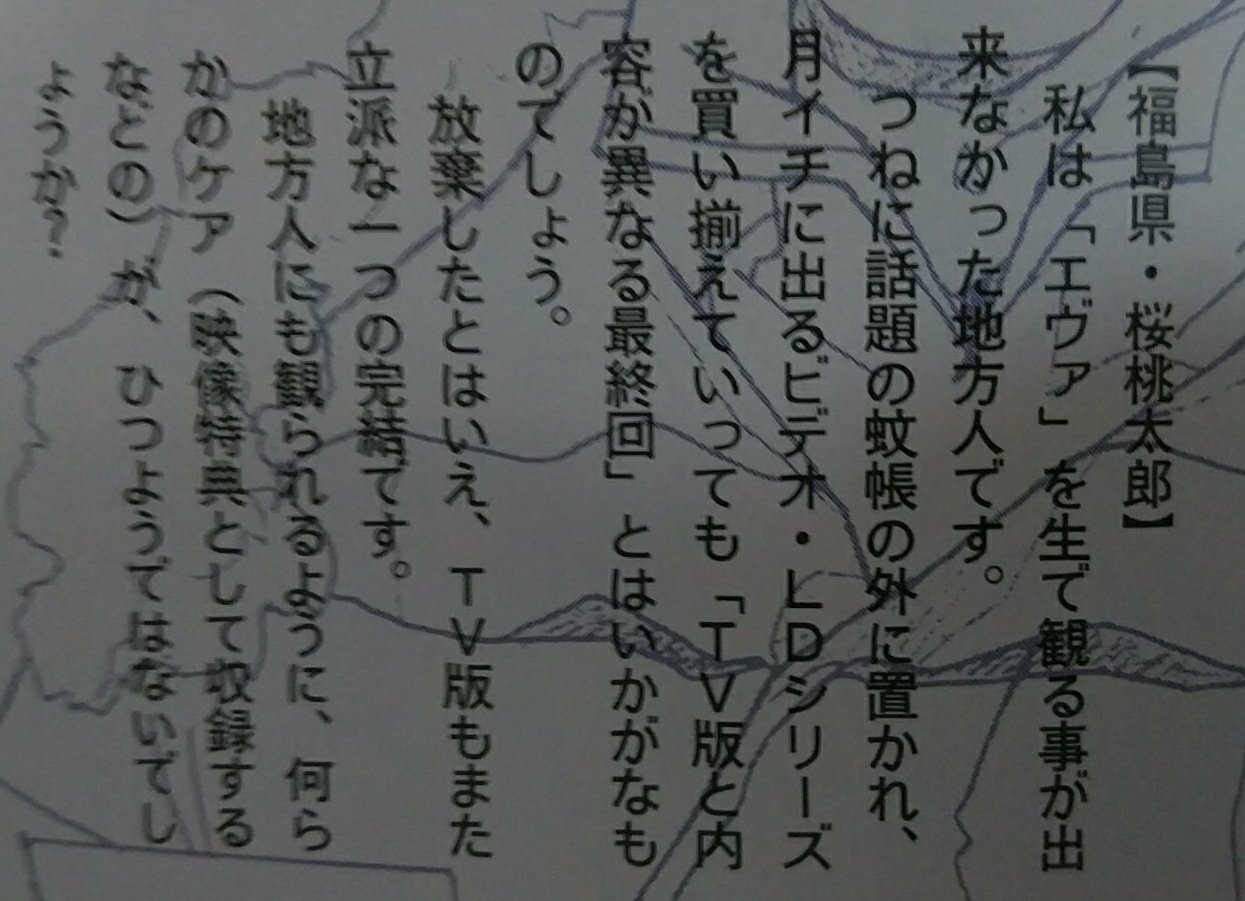 【福島県・桜桃太郎】
私は「エヴァ」を生で観る事が出
来なかった地方人です。
つねに話題の蚊帳の外に置かれ、
月イチに出るビデオ・ＬＤシリーズ
を買い揃えていっても「ＴＶ版と内
容が異なる最終回」とはいかがなも
のでしょう。
放棄したとはいえ、ＴＶ版もまた
立派な一つの完結です。
地方人にも観られるように、何ら
かのケア（映像特典として収録する
などの）が、ひつようではないでし
ょうか？